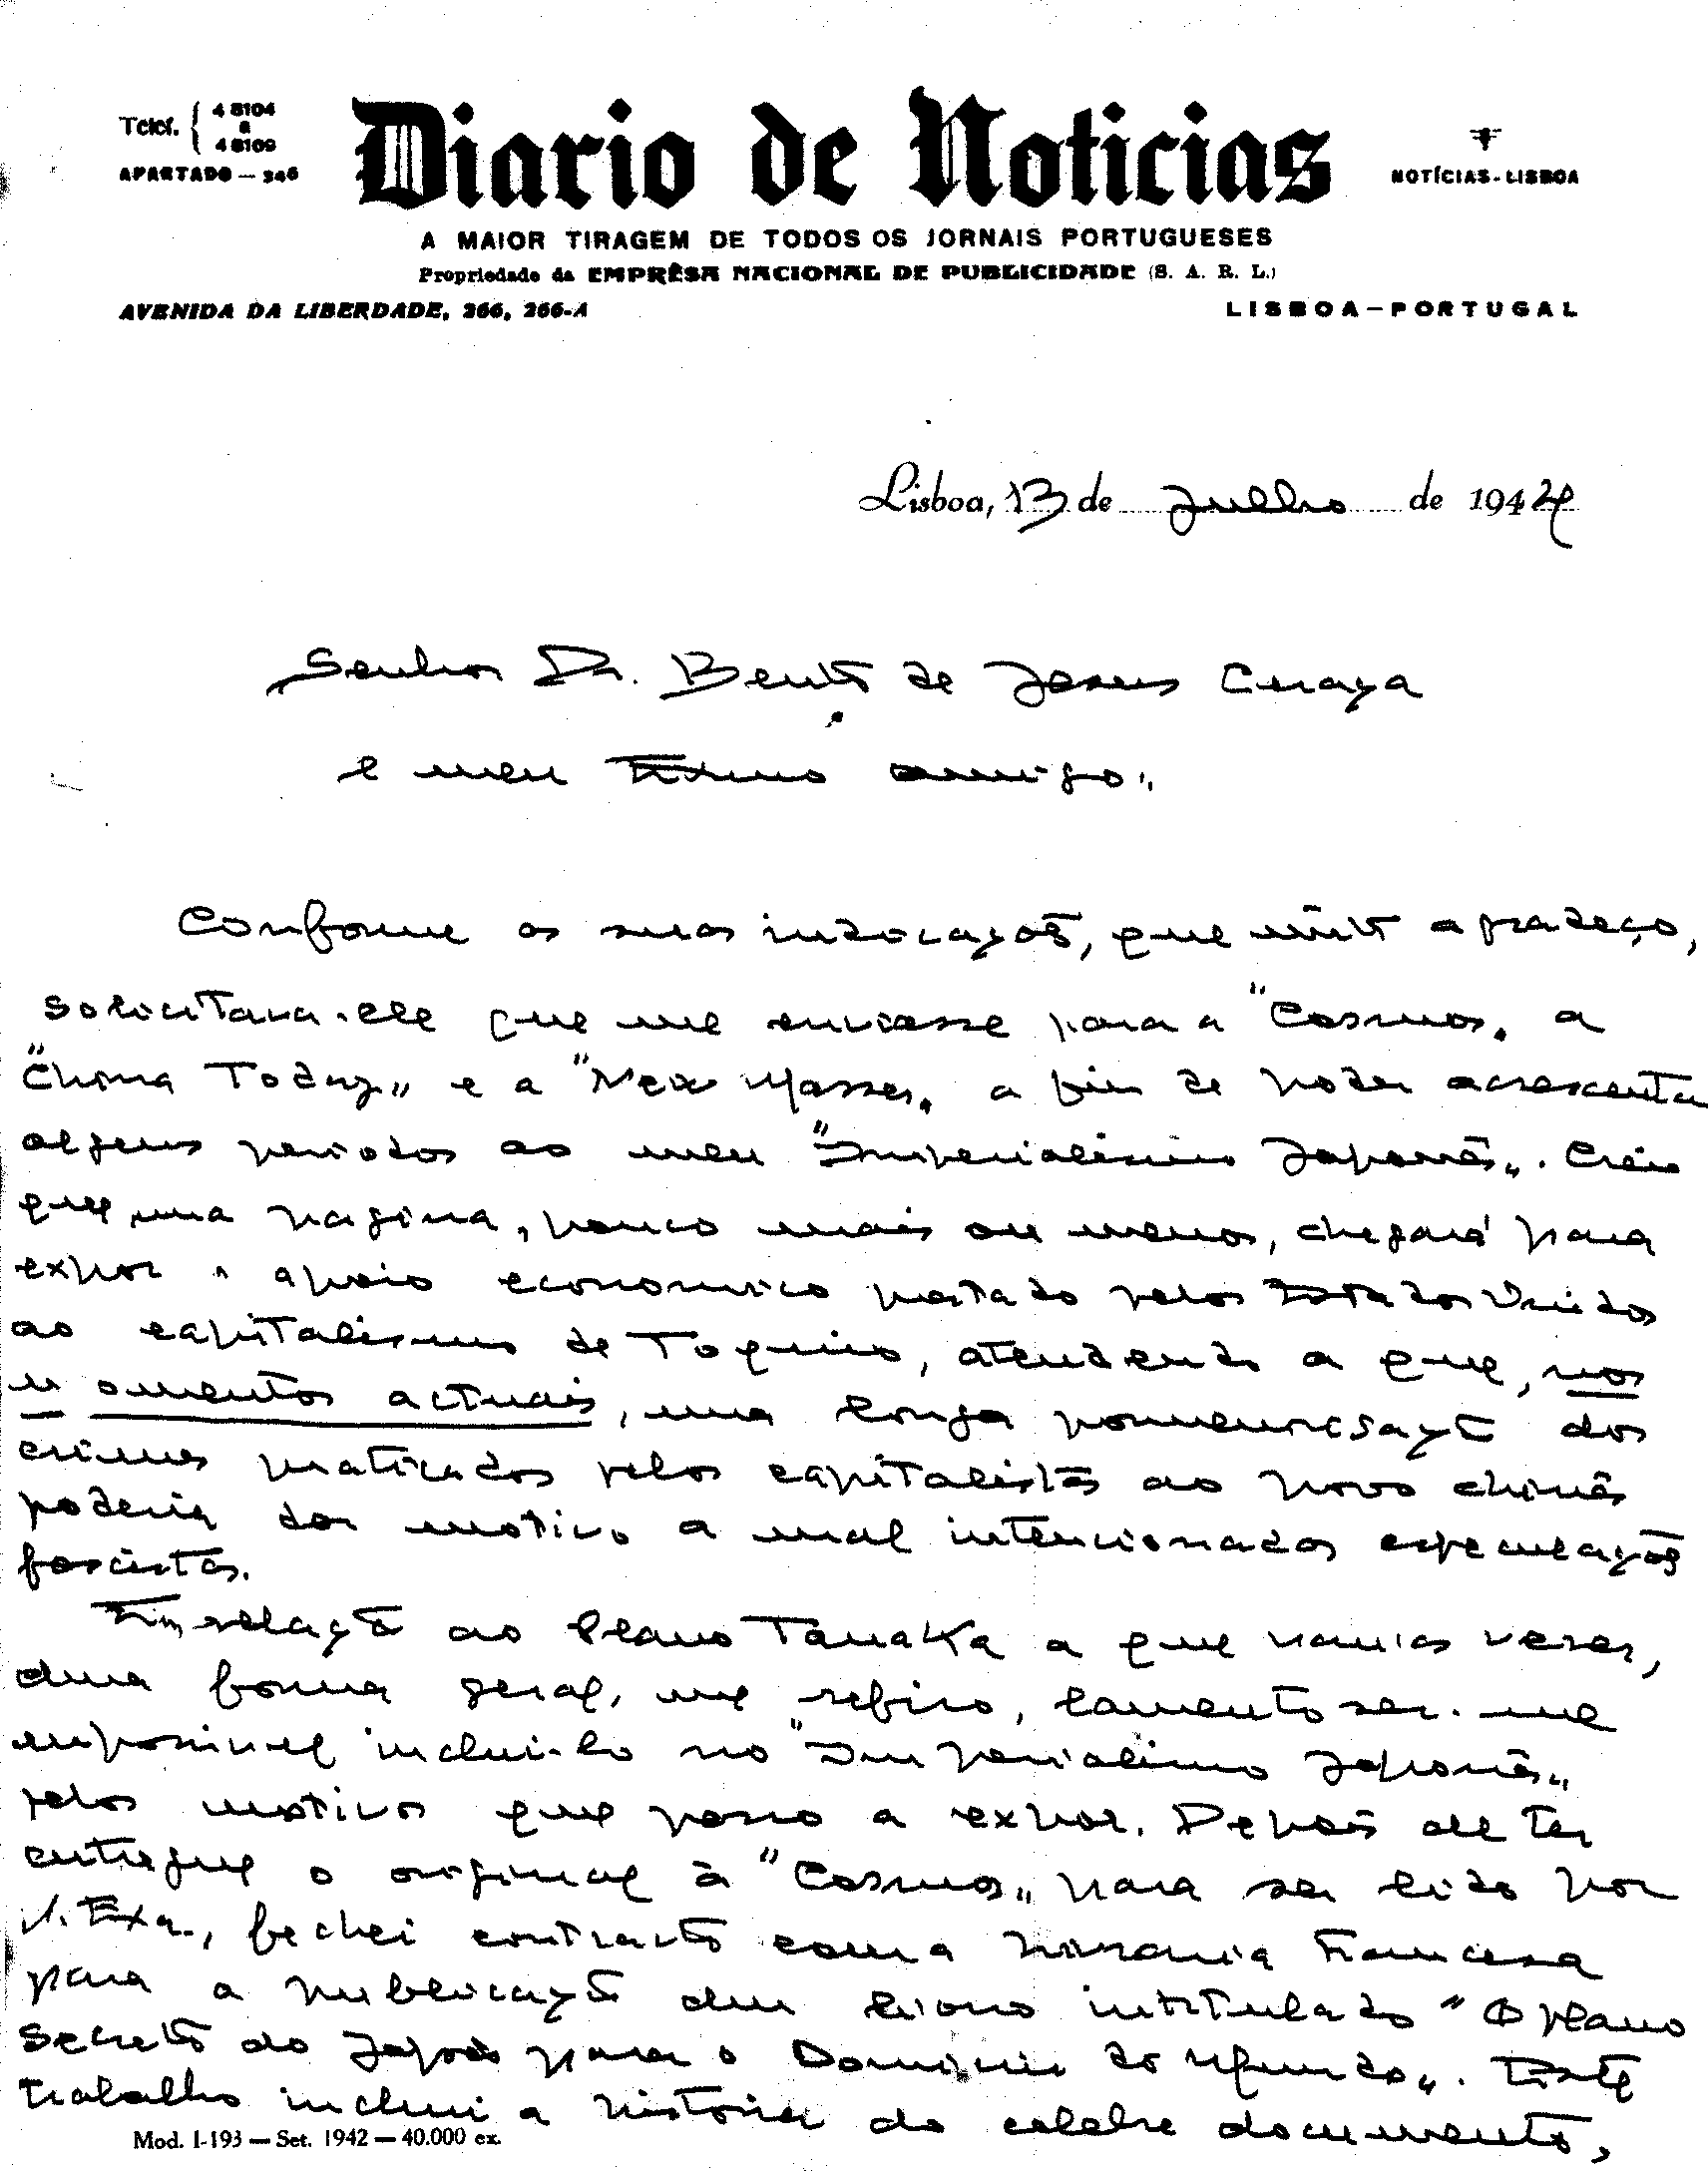 Telef. { 48104
a
48109
APARTADO — 346
Diario de Noticias
NOTÍCIAS-LISBOA
A MAIOR TIRAGEM DE TODOS OS JORNAIS PORTUGUESES
Propriedade da EMPRÊSA NACIONAL DE PUBLICIDADE (S. A. R. L.)
AVENIDA DA LIBERDADE, 266, 266-A
LISBOA—PORTUGAL
Lisboa, 13 de Julho de 1944
Senhor Dr. Bento de Jesus Caraça
e meu Exmo amigo:
Conforme as suas indicações, que muito agradeço,
solicitara-lhe que me enviasse para a "Cosmos" a
"China Today" e a "New Masses" a fim de poder acrescentar
alguns periodos ao meu "Imperialismo Japonês". Creio
que uma pagina, pouco mais ou menos, chegará para
expor o apoio economico prestado pelos Estados Unidos
ao capitalismo de Toquio, atendendo a que, nos
momentos actuais, uma longa pormenorisação dos
crimes praticados pelos capitalistas ao povo chinês
poderia dar motivo a mal intencionadas especulações
fascistas.
Em relação ao Plano Tanaka a que varias vezes,
duma forma geral, me refiro, lamento ser-me
impossivel inclui-lo no "Imperialismo Japonês"
pelos motivos que passo a expor. Depois de ter
entregue o original à "Cosmos" para ser lido por
V. Exa., fechei contracto com a Livraria Francesa
para a publicação dum livro intitulado "O Plano
Secreto do Japão para o Dominio do Mundo". Este
trabalho inclui a historia do celebre documento,
Mod. I-193 — Set. 1942 — 40.000 ex.